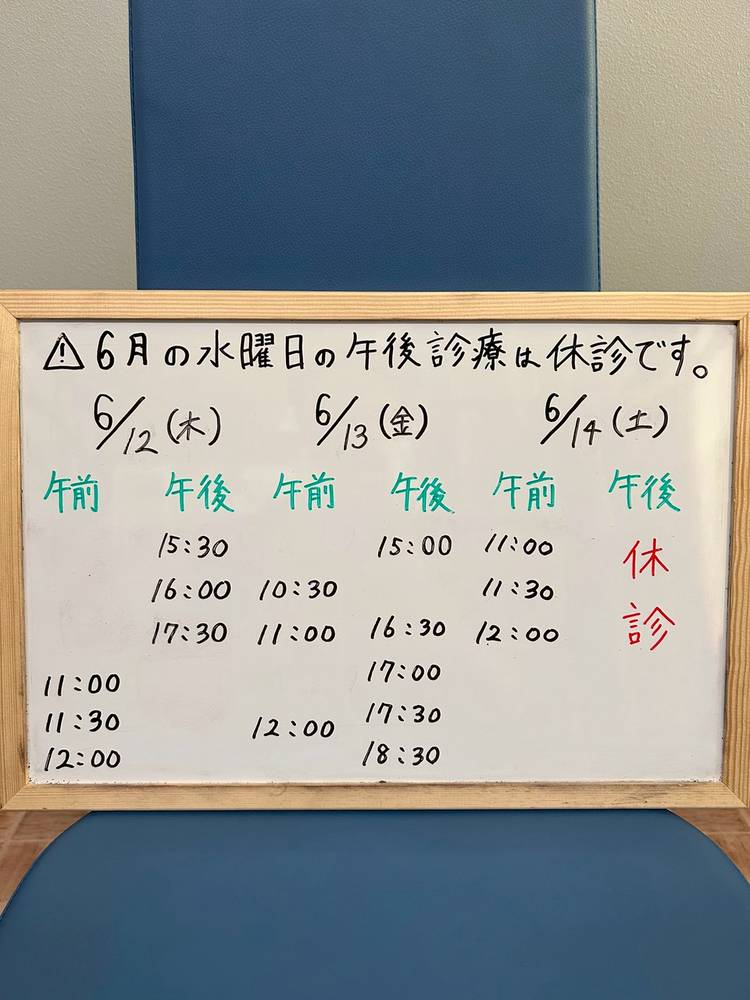 ⚠6月の水曜日の午後診療は休診です。
6/12(木) 6/13(金) 6/14(土)
午前 午後 午前 午後 午前 午後
15:30 15:00 11:00 休
16:00 10:30 11:30
17:30 11:00 16:30 12:00 診
11:00 17:00
11:30 12:00 17:30
12:00 18:30